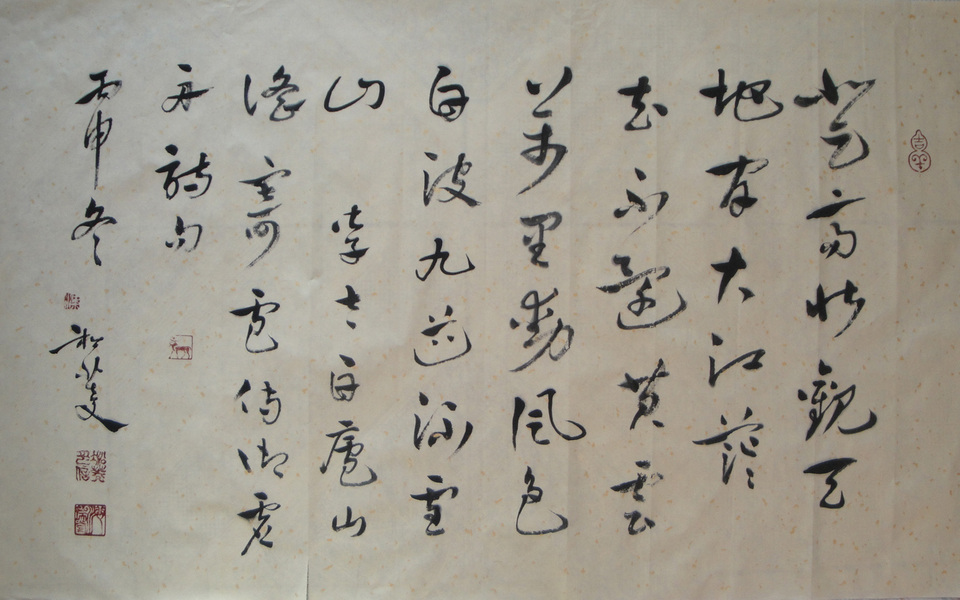 登高壮觀天
地间大江茫茫
去不還黄雲
萬里動風色
白波九道流雪
山 李太白廬山
謠寄盧侍御虚
舟詩句
丙申冬